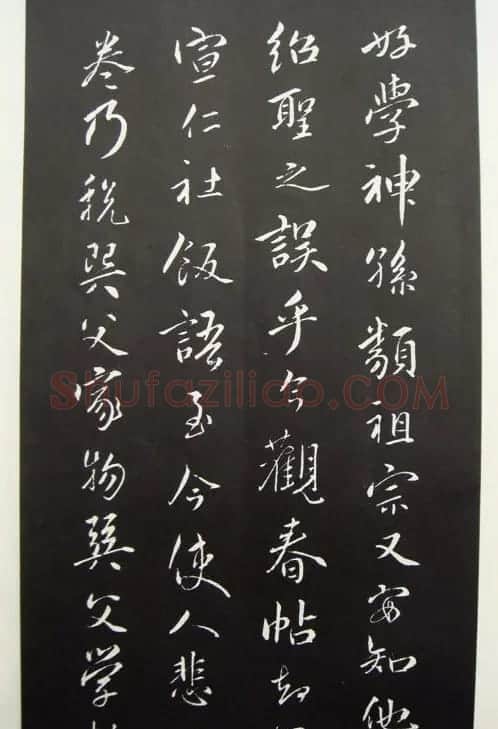 好學神孫類祖宗又安知他
紹聖之誤乎今觀春帖却
宣仁社飯語至今使人悲
卷乃稅巽父家物巽父学
Shufaziliao.COM